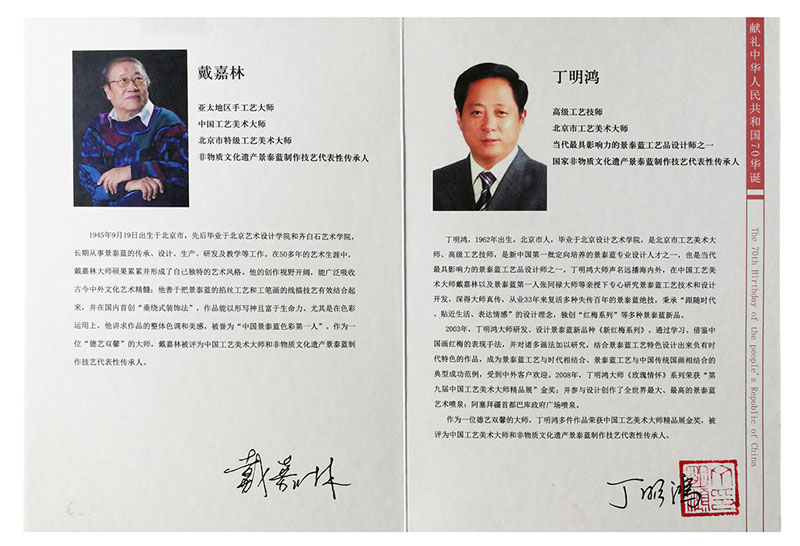 戴嘉林
亚太地区手工艺大师
中国工艺美术大师
北京市特级工艺美术大师
非物质文化遗产景泰蓝制作技艺代表性传承人
1945年9月19日出生于北京市，先后毕业于北京艺术设计学院和齐白石艺术学院，
长期从事景泰蓝的传承、设计、生产、研发及教学等工作。在50多年的艺术生涯中，
戴嘉林大师硕果累累并形成了自己独特的艺术风格。他的创作视野开阔，能广泛吸收
古今中外文化艺术精髓；他善于把景泰蓝的掐丝工艺和工笔画的线描技艺有效结合起
来，并在国内首创“垂绕式装饰法”，作品能以形写神且富于生命力。尤其是在色彩
运用上，他讲求作品的整体色调和美感，被誉为“中国景泰蓝色彩第一人”。作为一
位“德艺双馨”的大师，戴嘉林被评为中国工艺美术大师和非物质文化遗产景泰蓝制
作技艺代表性传承人。
戴嘉林
丁明鸿
高级工艺技师
北京市工艺美术大师
当代最具影响力的景泰蓝工艺品设计师之一
国家非物质文化遗产景泰蓝制作技艺代表性传承人
丁明鸿，1962年出生，北京市人，毕业于北京设计艺术学院，是北京市工艺美术大
师、高级工艺技师，是新中国第一批定向培养的景泰蓝专业设计人才之一，也是当代
最具影响力的景泰蓝工艺品设计师之一。丁明鸿大师声名远播海内外，在中国工艺美
术大师戴嘉林以及景泰蓝第一人张同禄大师等亲授下专心研究景泰蓝工艺技术和设计
开发，深得大师真传，从业33年来复活多种失传百年的景泰蓝绝技，秉承“跟随时代
、贴近生活、表达情感”的设计理念，独创《红梅系列》等多种景泰蓝新品。
2003年，丁明鸿大师研发、设计景泰蓝新品种《新红梅系列》。通过学习、借鉴中
国画红梅的表现手法，并对诸多画法加以研究，结合景泰蓝工艺特色设计出来负有时
代特色的作品，成为景泰蓝工艺与时代相结合、景泰蓝工艺与中国传统国画相结合的
典型成功范例，受到中外客户欢迎。2008年，丁明鸿大师《玫瑰情怀》系列荣获“第
九届中国工艺美术大师精品展”金奖；并参与设计创作了全世界最大、最高的景泰蓝
艺术喷泉：阿塞拜疆首都巴库政府广场喷泉。
作为一位德艺双馨的大师，丁明鸿多件作品荣获中国工艺美术大师精品展金奖，被
评为中国工艺美术大师和非物质文化遗产景泰蓝制作技艺代表性传承人。
丁明鸿
献礼中华人民共和国70华诞
The 70th Birthday of the people's Republic of China